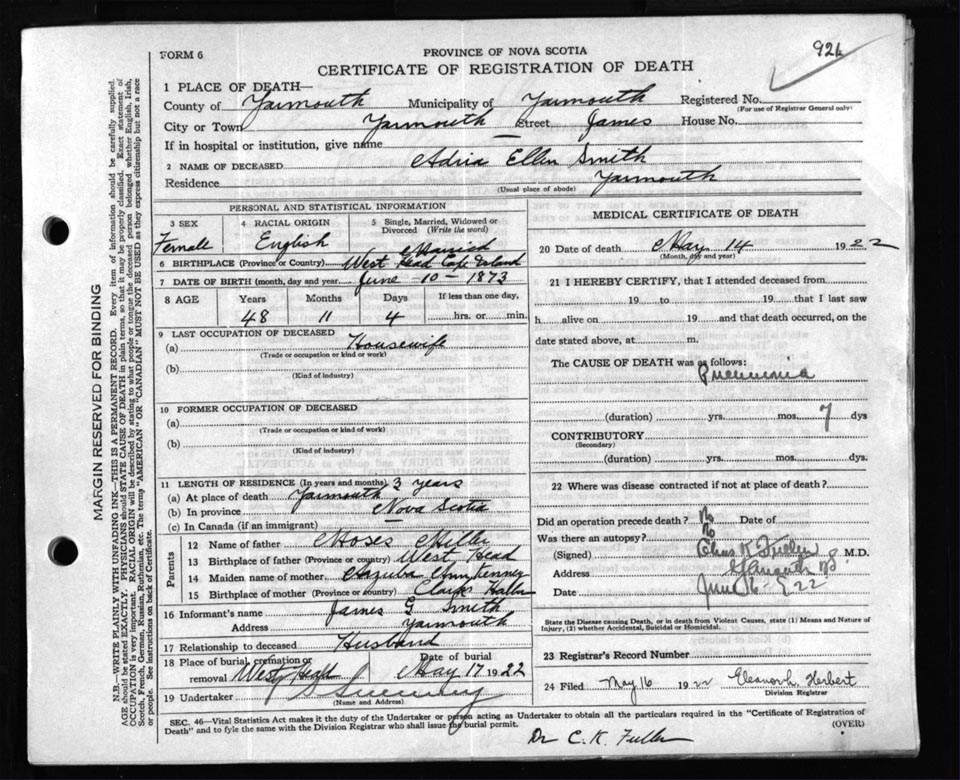 FORM 6
PROVINCE OF NOVA SCOTIA
926
CERTIFICATE OF REGISTRATION OF DEATH
1 PLACE OF DEATH—
County of Yarmouth Municipality of Yarmouth Registered No.
(For use of Registrar General only)
City or Town Yarmouth Street James House No.
If in hospital or institution, give name
2 NAME OF DECEASED Adria Ellen Smith
Residence Yarmouth
(Usual place of abode)
PERSONAL AND STATISTICAL INFORMATION
3 SEX 4 RACIAL ORIGIN 5 Single, Married, Widowed or Divorced (Write the word)
Female English Married
6 BIRTHPLACE (Province or Country) West Head Cape Island
7 DATE OF BIRTH (month, day and year) June 10 - 1873
8 AGE Years Months Days If less than one day,
48 11 4 hrs. or min.
9 LAST OCCUPATION OF DECEASED
(a) Housewife
(Trade or occupation or kind or work)
(b)
(Kind of industry)
10 FORMER OCCUPATION OF DECEASED
(a)
(Trade or occupation or kind of work)
(b)
(Kind of industry)
11 LENGTH OF RESIDENCE (In years and months) 3 years
(a) At place of death Yarmouth
(b) In province Nova Scotia
(c) In Canada (if an immigrant)
Parents
12 Name of father Moses
13 Birthplace of father (Province or country) West Head
14 Maiden name of mother Ann Kenney
15 Birthplace of mother (Province or country) Clarks
16 Informant's name James G Smith
Address Yarmouth
17 Relationship to deceased Husband
18 Place of burial, cremation or removal West Head Date of burial May 17 1922
19 Undertaker Sweeney
(Name and Address)
MEDICAL CERTIFICATE OF DEATH
20 Date of death May 14 1922
(Month, day and year)
21 I HEREBY CERTIFY, that I attended deceased from
19 to 19 that I last saw
h alive on 19 and that death occurred, on the
date stated above, at m.
The CAUSE OF DEATH was as follows:
Pneumonia
(duration) yrs. mos. 7 dys
CONTRIBUTORY
(Secondary)
(duration) yrs. mos. dys.
22 Where was disease contracted if not at place of death?
Did an operation precede death? No Date of
Was there an autopsy? No
(Signed) Chas K Fuller M.D.
Address Yarmouth NS
Date June 16 - 22
State the Disease causing Death, or in death from Violent Causes, state (1) Means and Nature of Injury, (2) whether Accidental, Suicidal or Homicidal.
23 Registrar's Record Number
24 Filed May 16 1922 Eleanor L. Herbert
Division Registrar
SEC. 46—Vital Statistics Act makes it the duty of the Undertaker or person acting as Undertaker to obtain all the particulars required in the "Certificate of Registration of
Death" and to fyle the same with the Division Registrar who shall issue the burial permit. (OVER)
Dr C. K. Fuller
MARGIN RESERVED FOR BINDING
N.B.—WRITE PLAINLY WITH UNFADING INK—THIS IS A PERMANENT RECORD. Every item of information should be carefully supplied.
AGE should be stated EXACTLY. PHYSICIANS should STATE CAUSE OF DEATH in plain terms, so that it may be properly classified. Exact statement of
OCCUPATION is very important. RACIAL ORIGIN will be described by stating to what people or tongue the deceased person belonged whether English, Irish,
Scotch, French, German, Russian, Ruthenian, etc. The terms "AMERICAN" OR "CANADIAN" MUST NOT BE USED as they express citizenship but not a race
or people. See instructions on back of Certificate.